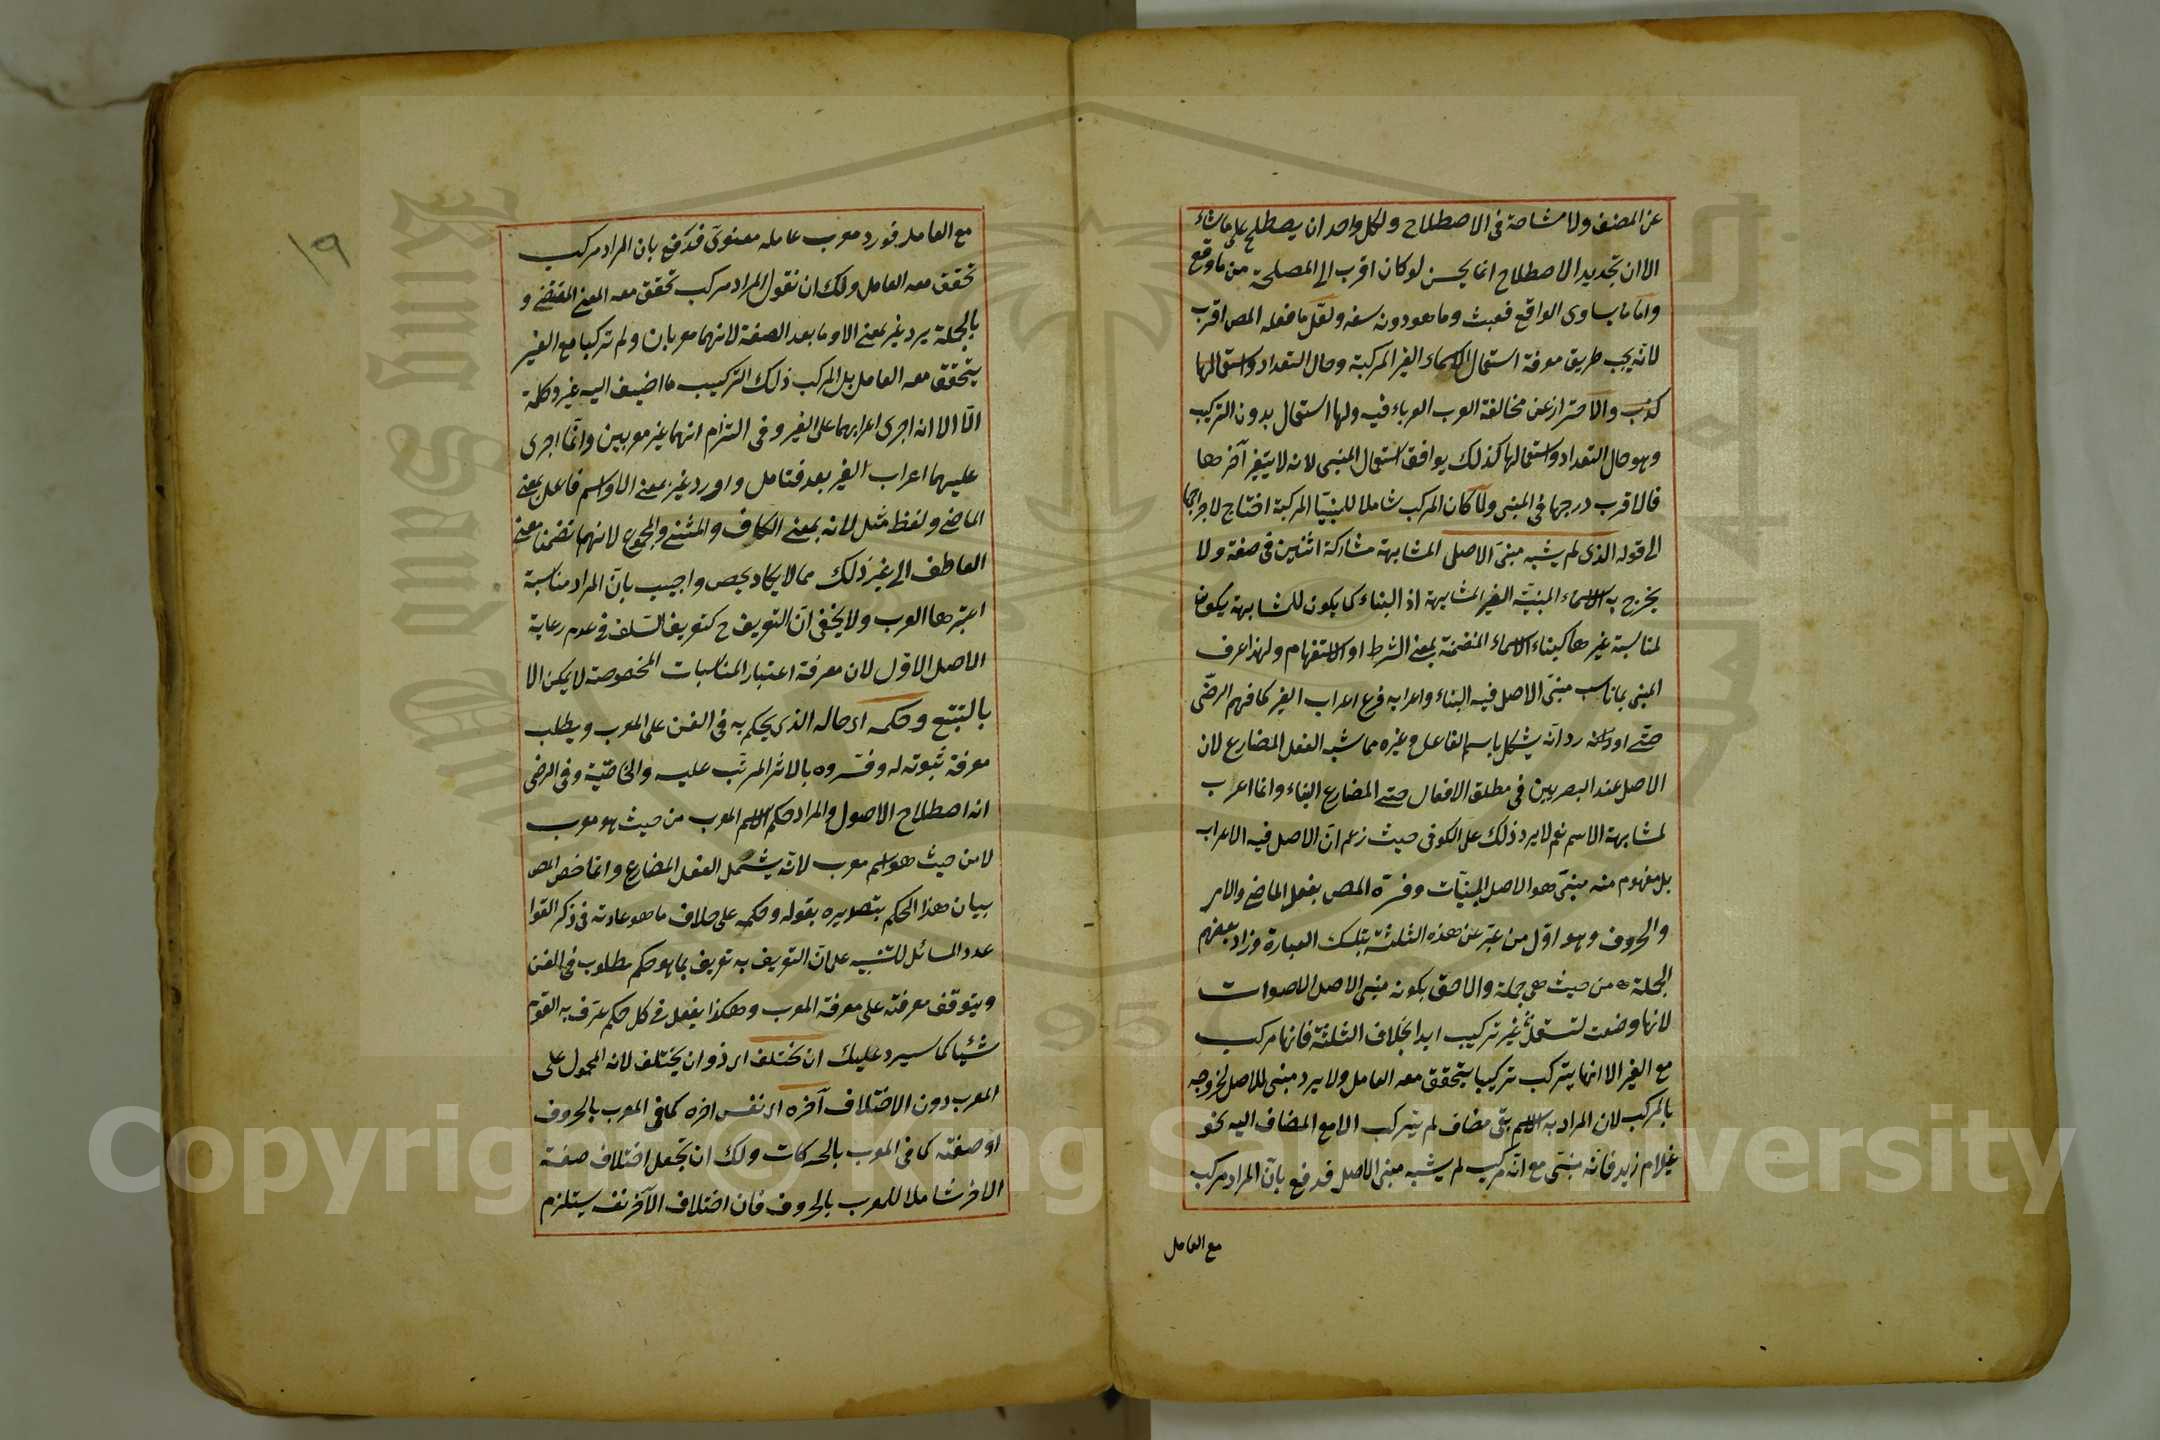 عن المصنف ولا مشاحة فى الاصطلاح ولكل واحد ان يصطلح على ما شاء
الا ان تجديد الاصطلاح انما يحسن لو كان اقرب الى المصلحة من ما وقع
واما ما يساوى الواقع فعبث وما هو دونه سفه ولعل ما فعله المص اقرب
لانه يجب طريق معرفة استعمال الاسماء الغير المركبة وحال التعداد واستعمالها
كذب والاحتراز عن مخالفة العرب العرباء فيه ولها استعمال بدون التركيب
وهو حال التعداد واستعمالها كذلك يوافق استعمال المبنى لانه لا يتغير آخرها
فالاقرب درجها فى المبنى ولما كان المركب شاملا للمبنيا المركبة احتاج لاخراجها
الى قوله الذى لم يشبه مبنى الاصل المشابهة مشاركة اثنين فى صفة ولا
يخرج به الاسماء المبنية الغير المشابهة اذ البناء كما يكون للمشابهة يكون
لمناسبة غيرها كبناء الاسماء المتضمنة بمعنى الشرط او الاستفهام ولهذا عرف
المبنى بما ناسب مبنى الاصل فيه البناء واعرابه فرع اعراب الغير كما فهم الرضى
حتى اورد انه يشكل باسم الفاعل وغيره مما شبه الفعل المضارع لان
الاصل عند البصريين فى مطلق الافعال حتى المضارع البناء وانما اعرب
لمشابهة الاسم نعم لا يرد ذلك على الكوفى حيث زعم ان الاصل فيه الاعراب
بل مفهوم منه مبنى هو الاصل المبنيات وفسره المص بفعل الماضى والامر
والحروف وهو اول من عبر عن هذه الثلثة بتلك العبارة وزاد بعضهم
الجملة من حيث هى جملة والاحق بكونه مبنى الاصل الاصوات
لانها وضعت لتستعمل غير تركيب ابدا بخلاف الثلثة فانها مركب
مع الغير الا انها يتركب تركيبا يتحقق معه العامل ولا يرد مبنى للاصل لخروجه
بالمركب لان المراد به الاسم بقى مضاف لم يتركب الا مع المضاف اليه نحو
غلام زيد فانه مبنى مع انه مركب لم يشبه مبنى الاصل فدفع بان المراد مركب
مع العامل
١٩
مع العامل فورد معرب عامله معنوى فدفع بان المراد مركب
تحقق معه العامل ولك ان نقول المراد مركب تحقق معه المعنى المقتضى و
بالجملة يرد غير بمعنى الا وما بعد الصفة لانهما معربان ولم تركبا مع الغير
يتحقق معه العامل بل المركب ذلك التركيب ما اضيف اليه غير وكلمة
الا الا انه اجرى اعرابهما على الغير وفى التزام انهما غير معربين وانما اجرى
عليهما اعراب الغير بعد فتامل واورد غير بمعنى الا واسم فاعل بمعنى
الماضى ولفظ مثل لانه بمعنى الكاف والمثنى والمجموع لانهما تضمنا معنى
العاطف الى غير ذلك مما لا يكاد يحصى واجيب بان المراد مناسبة
اعتبرها العرب ولا يخفى ان التعريف ح كتعريف السلف فى عدم رعاية
الاصل الاول لان معرفة اعتبار المناسبات المخصوصة لا يمكن الا
بالتتبع وحكمه اى حاله الذى يحكم به فى الفن على المعرب ويطلب
معرفة ثبوته له وفسروه بالاثر المرتب عليه والخاصية وفى الرضى
انه اصطلاح الاصول والمراد حكم الاسم المعرب من حيث هو معرب
لا من حيث هو اسم معرب لانه يشمل الفعل المضارع وانما خص المص
بيان هذا الحكم بتصويره بقوله وحكمه على خلاف ما هو عادته فى ذكر القوا
عدد المسائل للتنبيه على ان التعريف به تعريف بما هو حكم مطلوب فى الفن
ويتوقف معرفته على معرفة المعرب وهكذا يفعل فى كل حكم عرف به القوم
شيئا كما سيرد عليك ان يختلف اى ذو ان يختلف لانه المحمول على
المعرب دون الاختلاف آخره اى نفس اخره كما فى المعرب بالحروف
او صفته كما فى المعرب بالحركات ولك ان تجعل اختلاف صفة
الاخر شاملا للمعرب بالحروف فان اختلاف الآخر نفسه يستلزم
Copyright © King Saud University